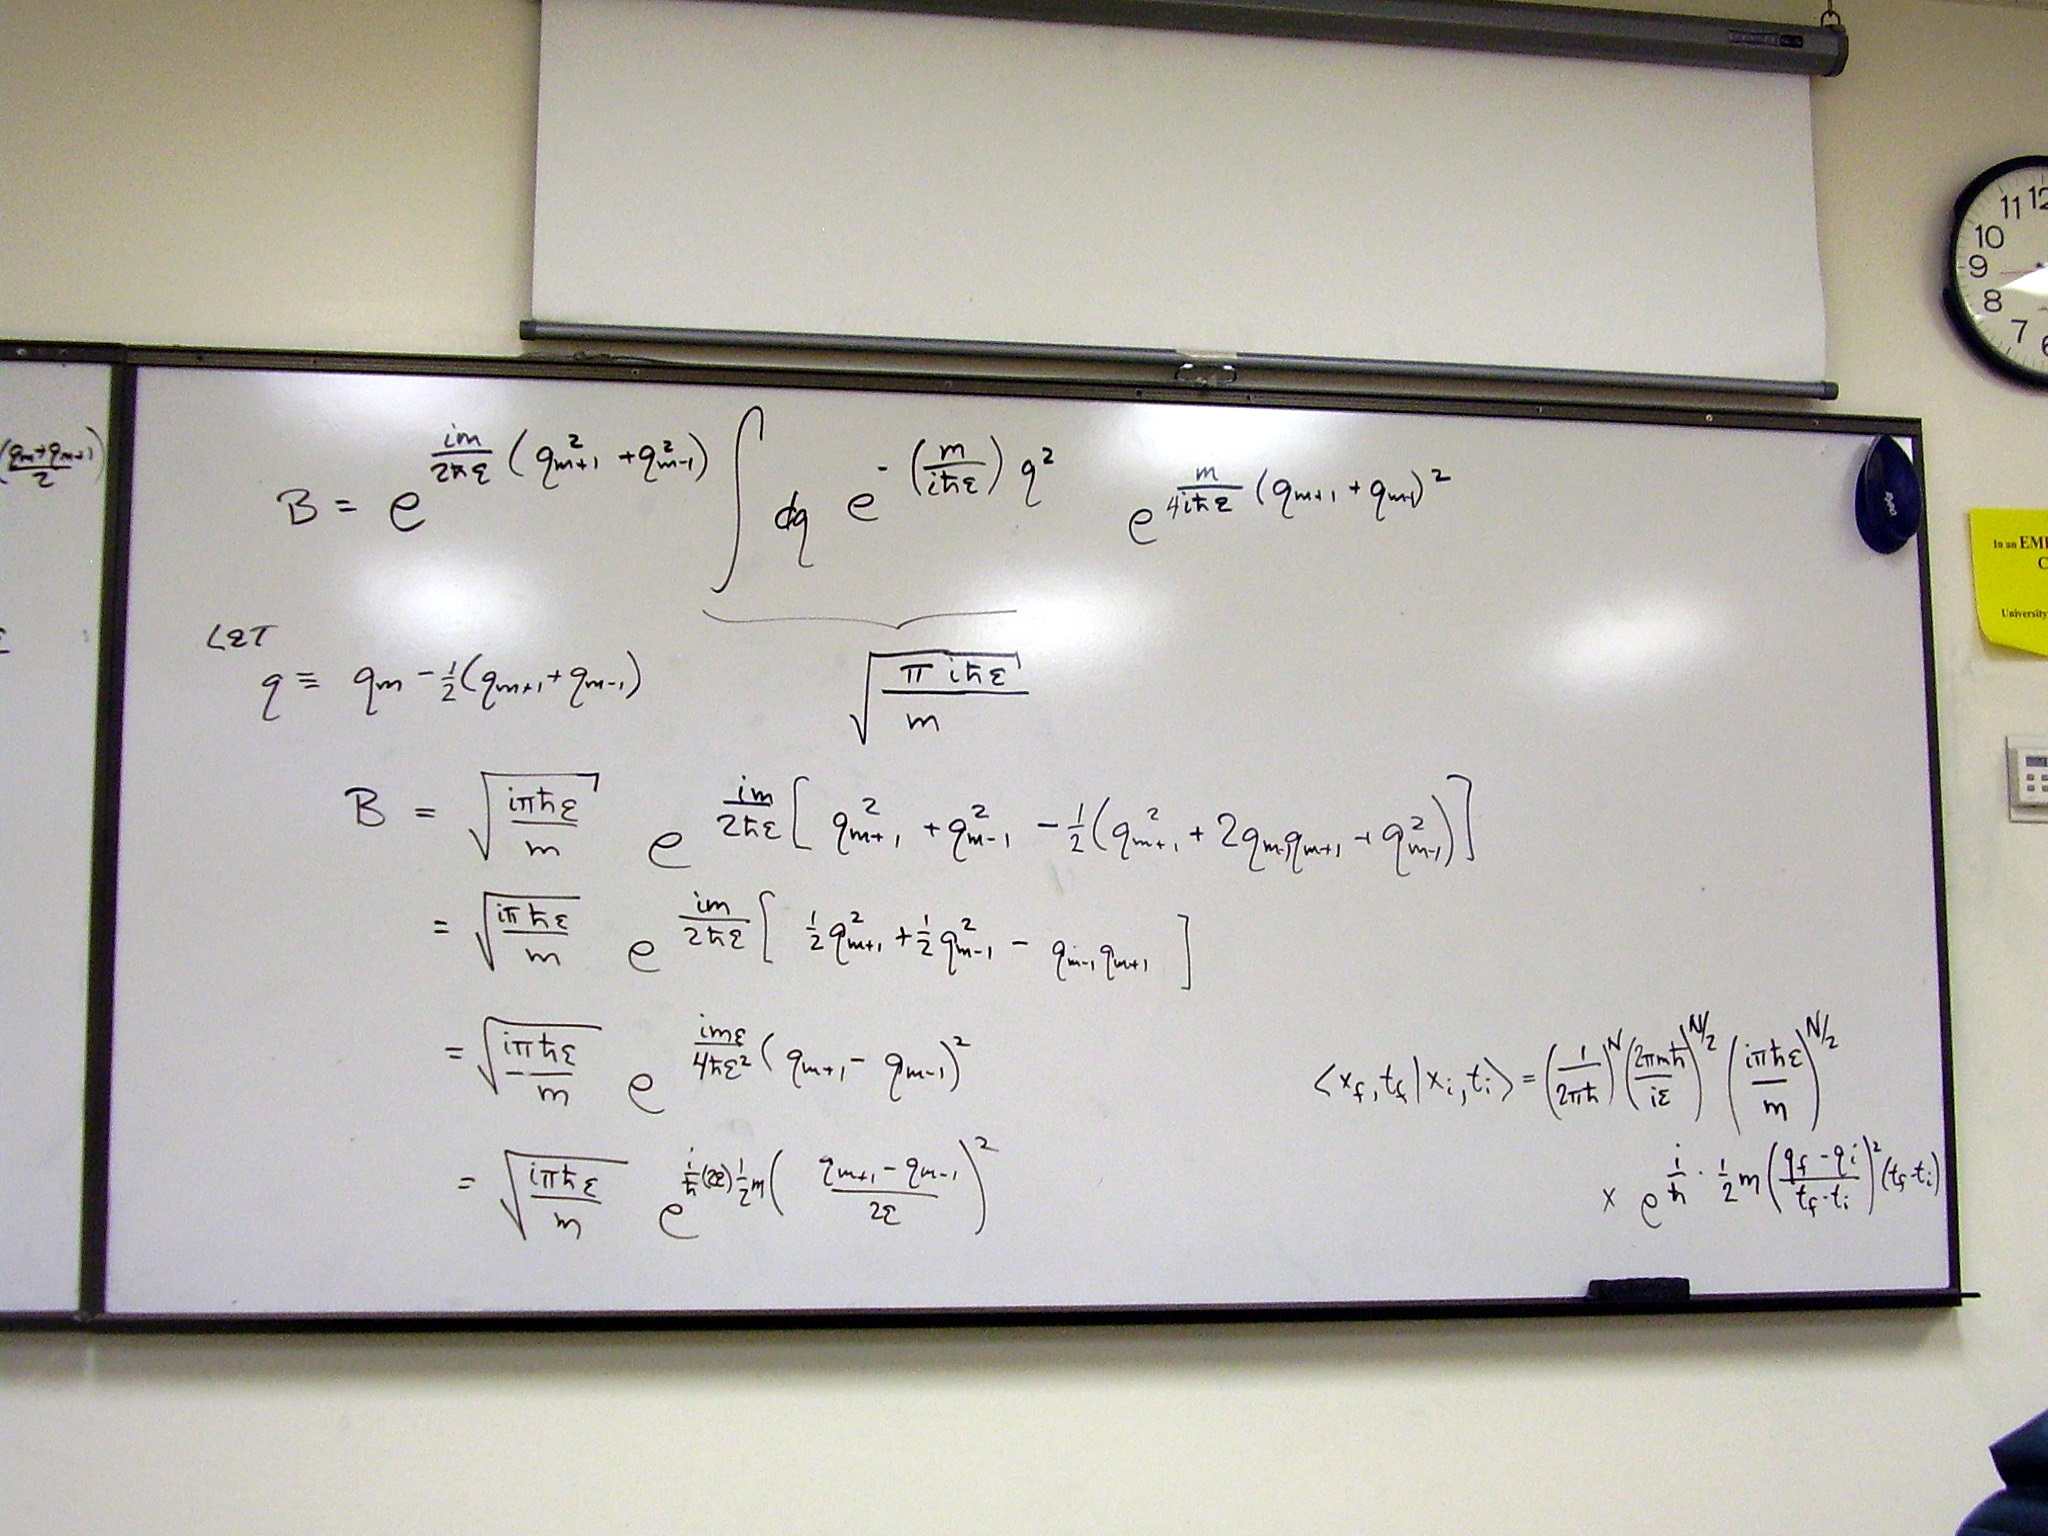 (qₘ+qₘ₊₁)/2
B = e^{im/2ħε (q²ₘ₊₁ + q²ₘ₋₁)} ∫ dq e^{-(m/iħε) q²} e^{m/4iħε (qₘ₊₁ + qₘ₋₁)²}
LET
q ≡ qₘ - ½(qₘ₊₁ + qₘ₋₁)
√(π iħε / m)
B = √(iπħε / m) e^{im/2ħε [q²ₘ₊₁ + q²ₘ₋₁ - ½(q²ₘ₊₁ + 2qₘ₋₁qₘ₊₁ + q²ₘ₋₁)]}
= √(iπħε / m) e^{im/2ħε [½q²ₘ₊₁ + ½q²ₘ₋₁ - qₘ₋₁qₘ₊₁]}
= √(iπħε / m) e^{imε/4ħε² (qₘ₊₁ - qₘ₋₁)²}
= √(iπħε / m) e^{i/ħ (2ε) ½m ((qₘ₊₁ - qₘ₋₁)/2ε)²}
⟨x_f, t_f | x_i, t_i⟩ = (1/2πħ)^N (2πmħ/iε)^{N/2} (iπħε/m)^{N/2}
× e^{i/ħ · ½m ((q_f - q_i)/(t_f - t_i))² (t_f - t_i)}
11 12
10
9
8
7
6
expo
In an EME
C
University